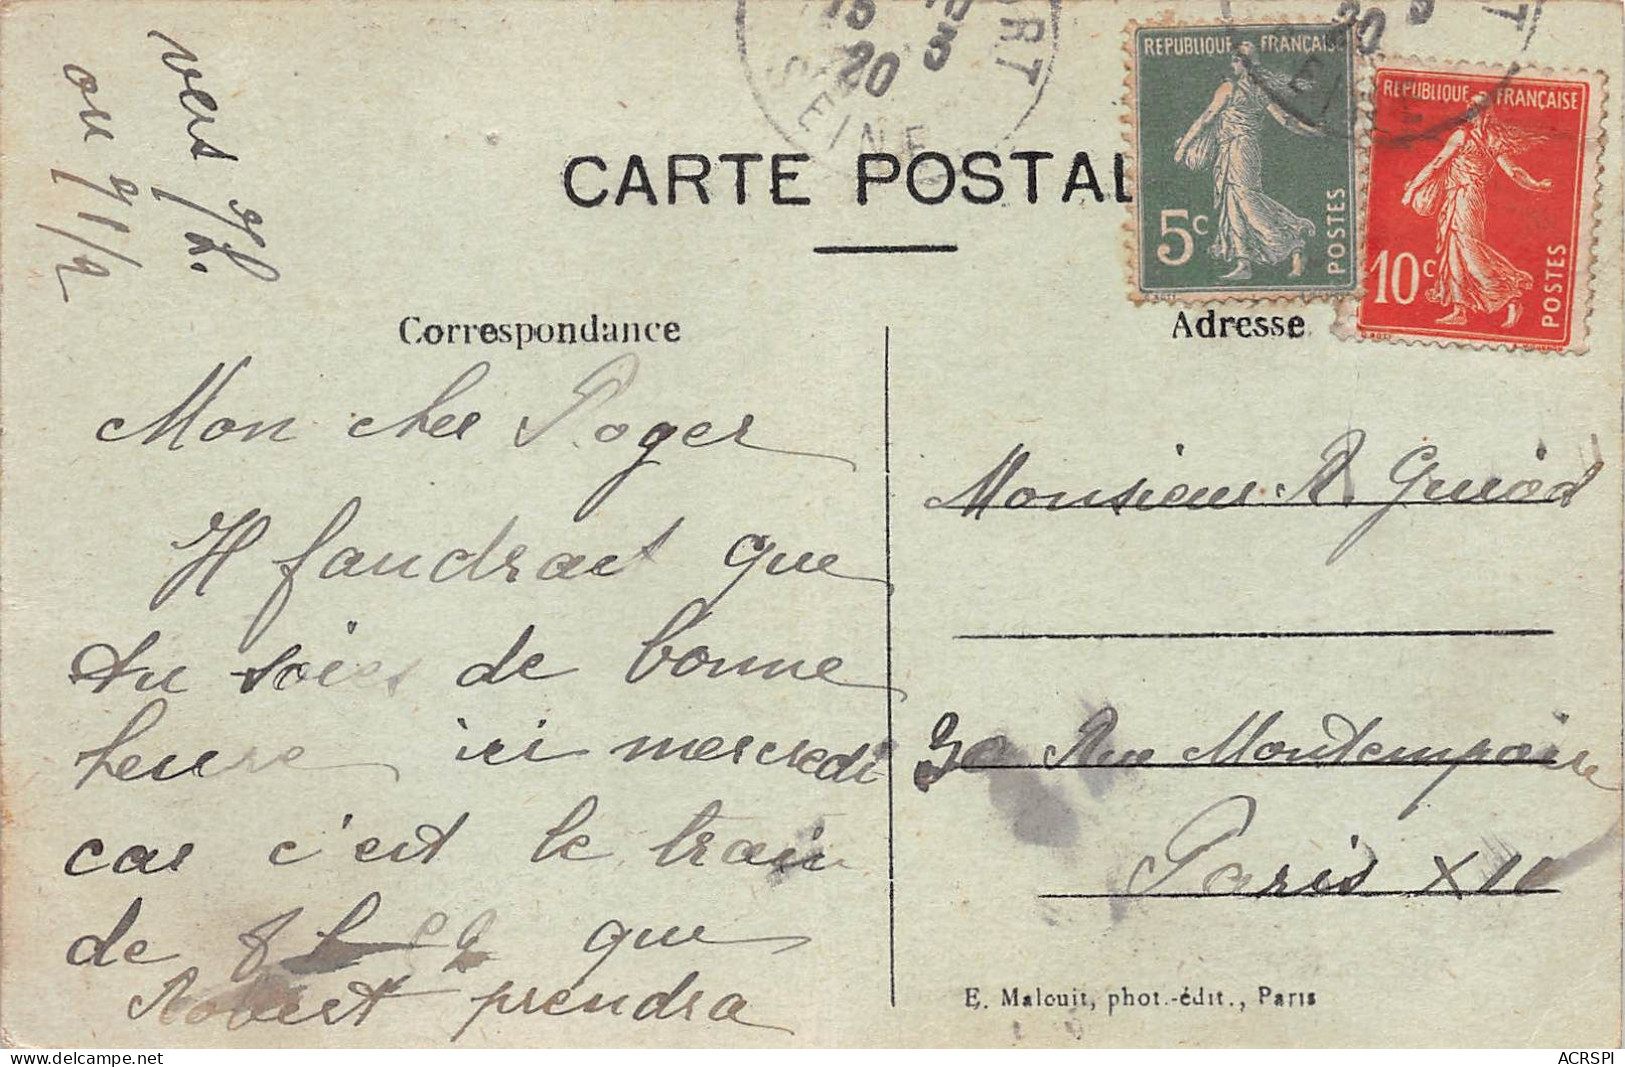 15
20
3
SEINE
RT
REPUBLIQUE FRANÇAISE
5c
POSTES
REPUBLIQUE FRANÇAISE
10c
POSTES
20
CARTE POSTAL
vers 9h.
ou 9 1/2
Correspondance
Adresse
Mon cher Roger
Il faudrait que
tu soies de bonne
heure ici mercredi
car c'est le train
de 8h que
Robert prendra
Monsieur R
30 Rue Montempoivre
Paris XII
E. Malcuit, phot.-édit., Paris
ACRSPI